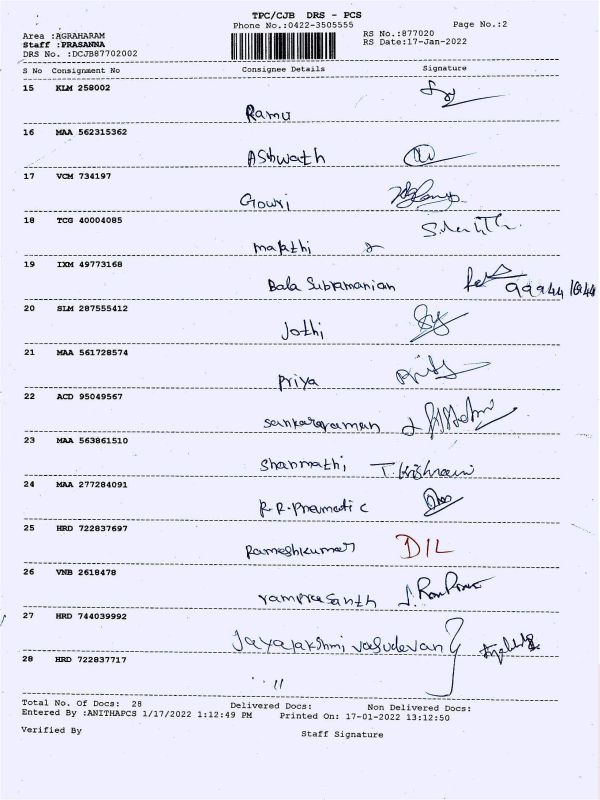 TPC/CJB DRS - PCS
Phone No.:0422-3505555 Page No.:2
Area :AGRAHARAM RS No.:877020
Staff :PRASANNA RS Date:17-Jan-2022
DRS No. :DCJB87702002
S No Consignment No Consignee Details Signature
15 KLM 258002
Ramu
16 MAA 562315362
Ashwath
17 VCM 734197
Gowri
18 TCG 40004085
19 IXM 49773168
Bala Subramanian
20 SLM 287555412
Jothi
21 MAA 561728574
Priya
22 ACD 95049567
Sankararaman
23 MAA 563861510
Shanmathi
24 MAA 277284091
R.R.Pneumatic
25 HRD 722837697
Rameshkumar DIL
26 VNB 2618478
ramprasanth
27 HRD 744039992
Jayalakshmi vasudevan
28 HRD 722837717
Total No. Of Docs: 28 Delivered Docs: Non Delivered Docs:
Entered By :ANITHAPCS 1/17/2022 1:12:49 PM Printed On: 17-01-2022 13:12:50
Verified By Staff Signature